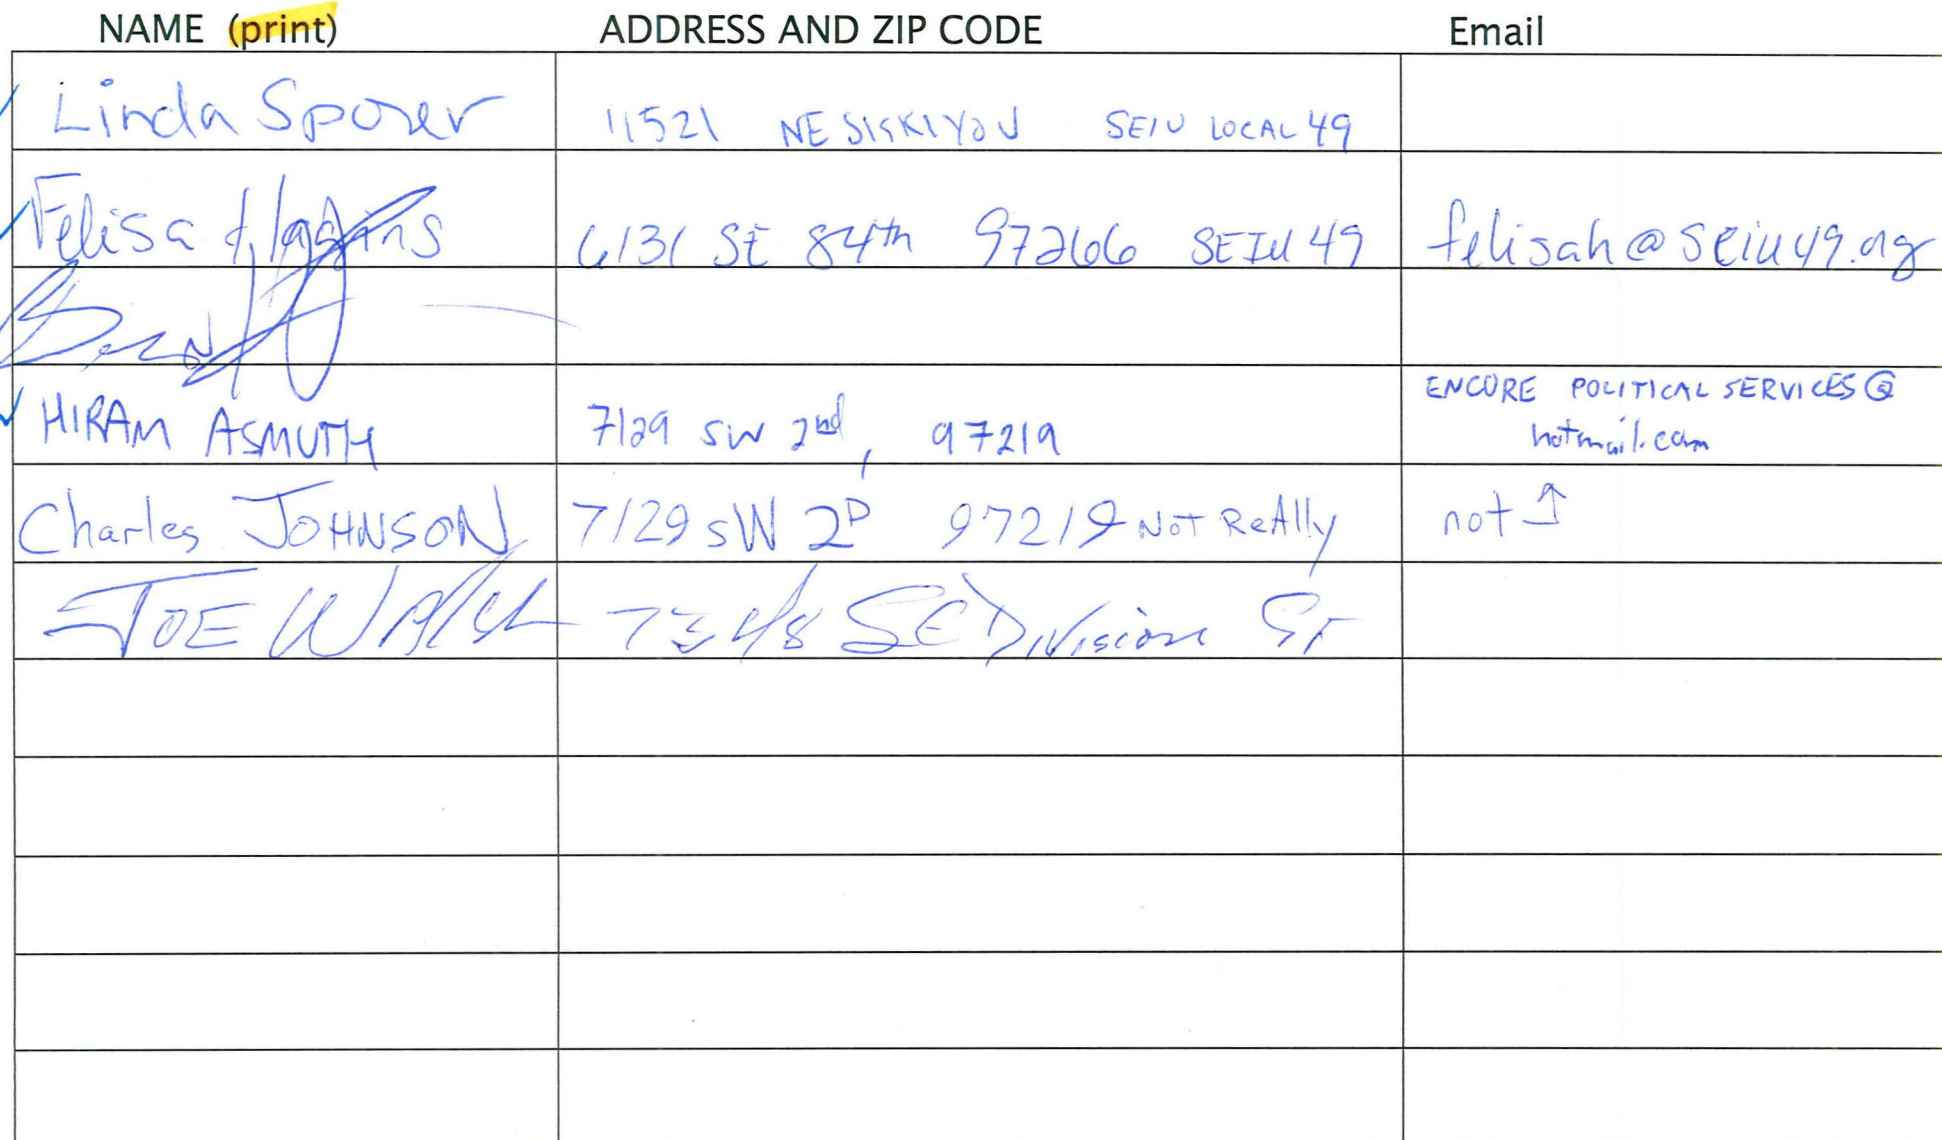 NAME (print) ADDRESS AND ZIP CODE Email
Linda Sporer 11521 NE SISKIYOU SEIU LOCAL 49
Felisa Hagins 6131 SE 84th 97266 SEIU 49 felisah@seiu49.org
HIRAM ASMUTH 7129 SW 2nd, 97219 ENCORE POLITICAL SERVICES@
hotmail.com
Charles JOHNSON 7129 SW 2D 97219 NOT ReAlly not ↑
JOE WAlsh 7348 SE Division ST